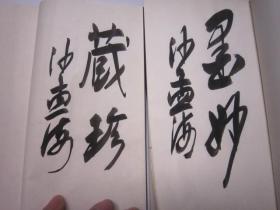 墨妙
沙孟海
藏珍
沙孟海